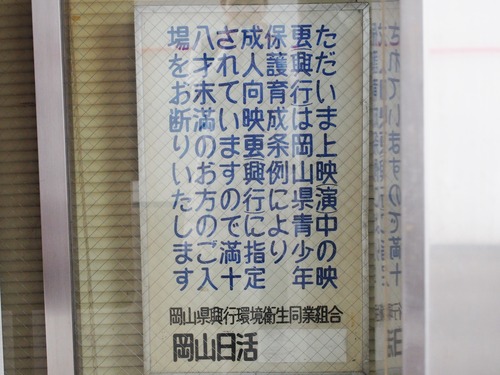 ただいま上映演中の映
画興行は岡山県青少年
保護育成条例により
成人向映画興行に指定
されていますので満十
八才未満のお方のご入
場をお断りいたします
岡山県興行環境衛生同業組合
岡山日活